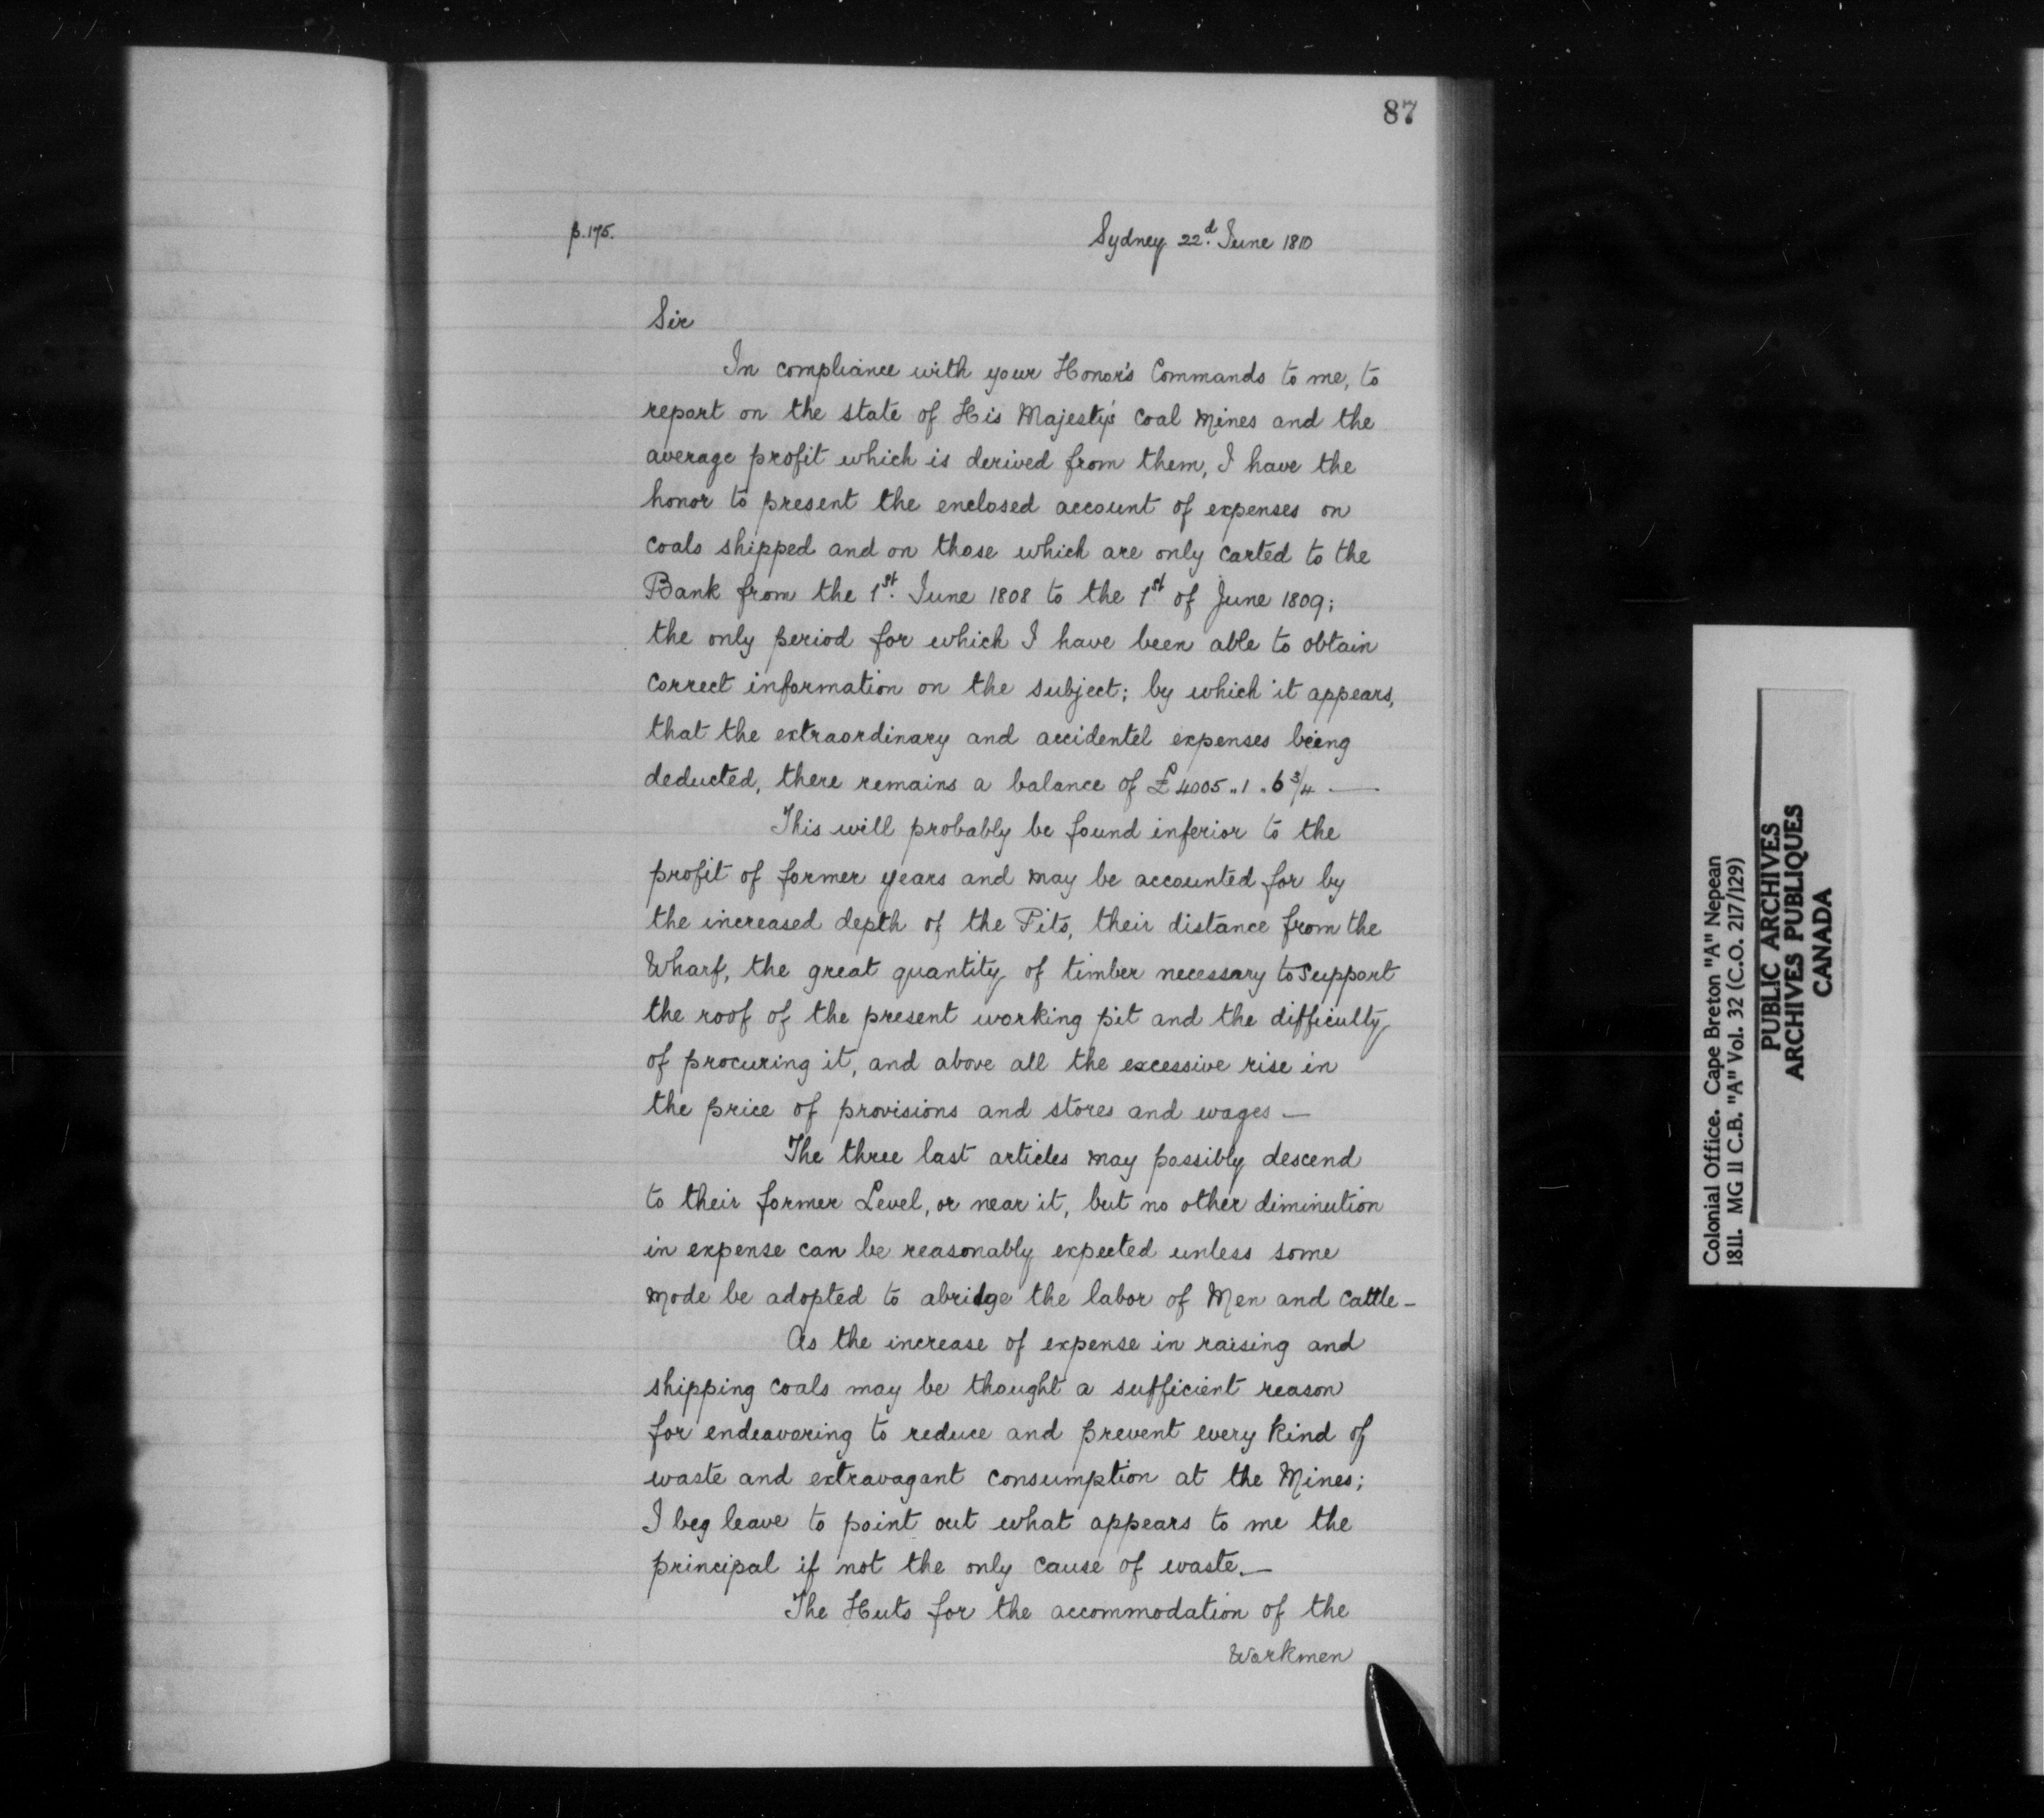 87
p. 175.
Sydney 22.d June 1810
Sir
In compliance with your Honor's Commands to me, to
report on the state of His Majesty's Coal Mines and the
average profit which is derived from them, I have the
honor to present the enclosed account of expenses on
coals shipped and on those which are only carted to the
Bank from the 1st. June 1808 to the 1st of June 1809;
the only period for which I have been able to obtain
correct information on the subject; by which it appears,
that the extraordinary and accidentel expenses being
deducted, there remains a balance of £4005..1.6 3/4 —
This will probably be found inferior to the
profit of former years and may be accounted for by
the increased depth of the Pits, their distance from the
Wharf, the great quantity of timber necessary to support
the roof of the present working pit and the difficulty
of procuring it, and above all the excessive rise in
the price of provisions and stores and wages —
The three last articles may possibly descend
to their former Level, or near it, but no other diminution
in expense can be reasonably expected unless some
mode be adopted to abridge the labor of Men and Cattle –
As the increase of expense in raising and
shipping coals may be thought a sufficient reason
for endeavoring to reduce and prevent every kind of
waste and extravagant consumption at the Mines;
I beg leave to point out what appears to me the
principal if not the only cause of waste. —
The Huts for the accommodation of the
Workmen
Colonial Office. Cape Breton "A" Nepean
1811. MG 11 C.B. "A" Vol. 32 (C.O. 217/129)
PUBLIC ARCHIVES
ARCHIVES PUBLIQUES
CANADA